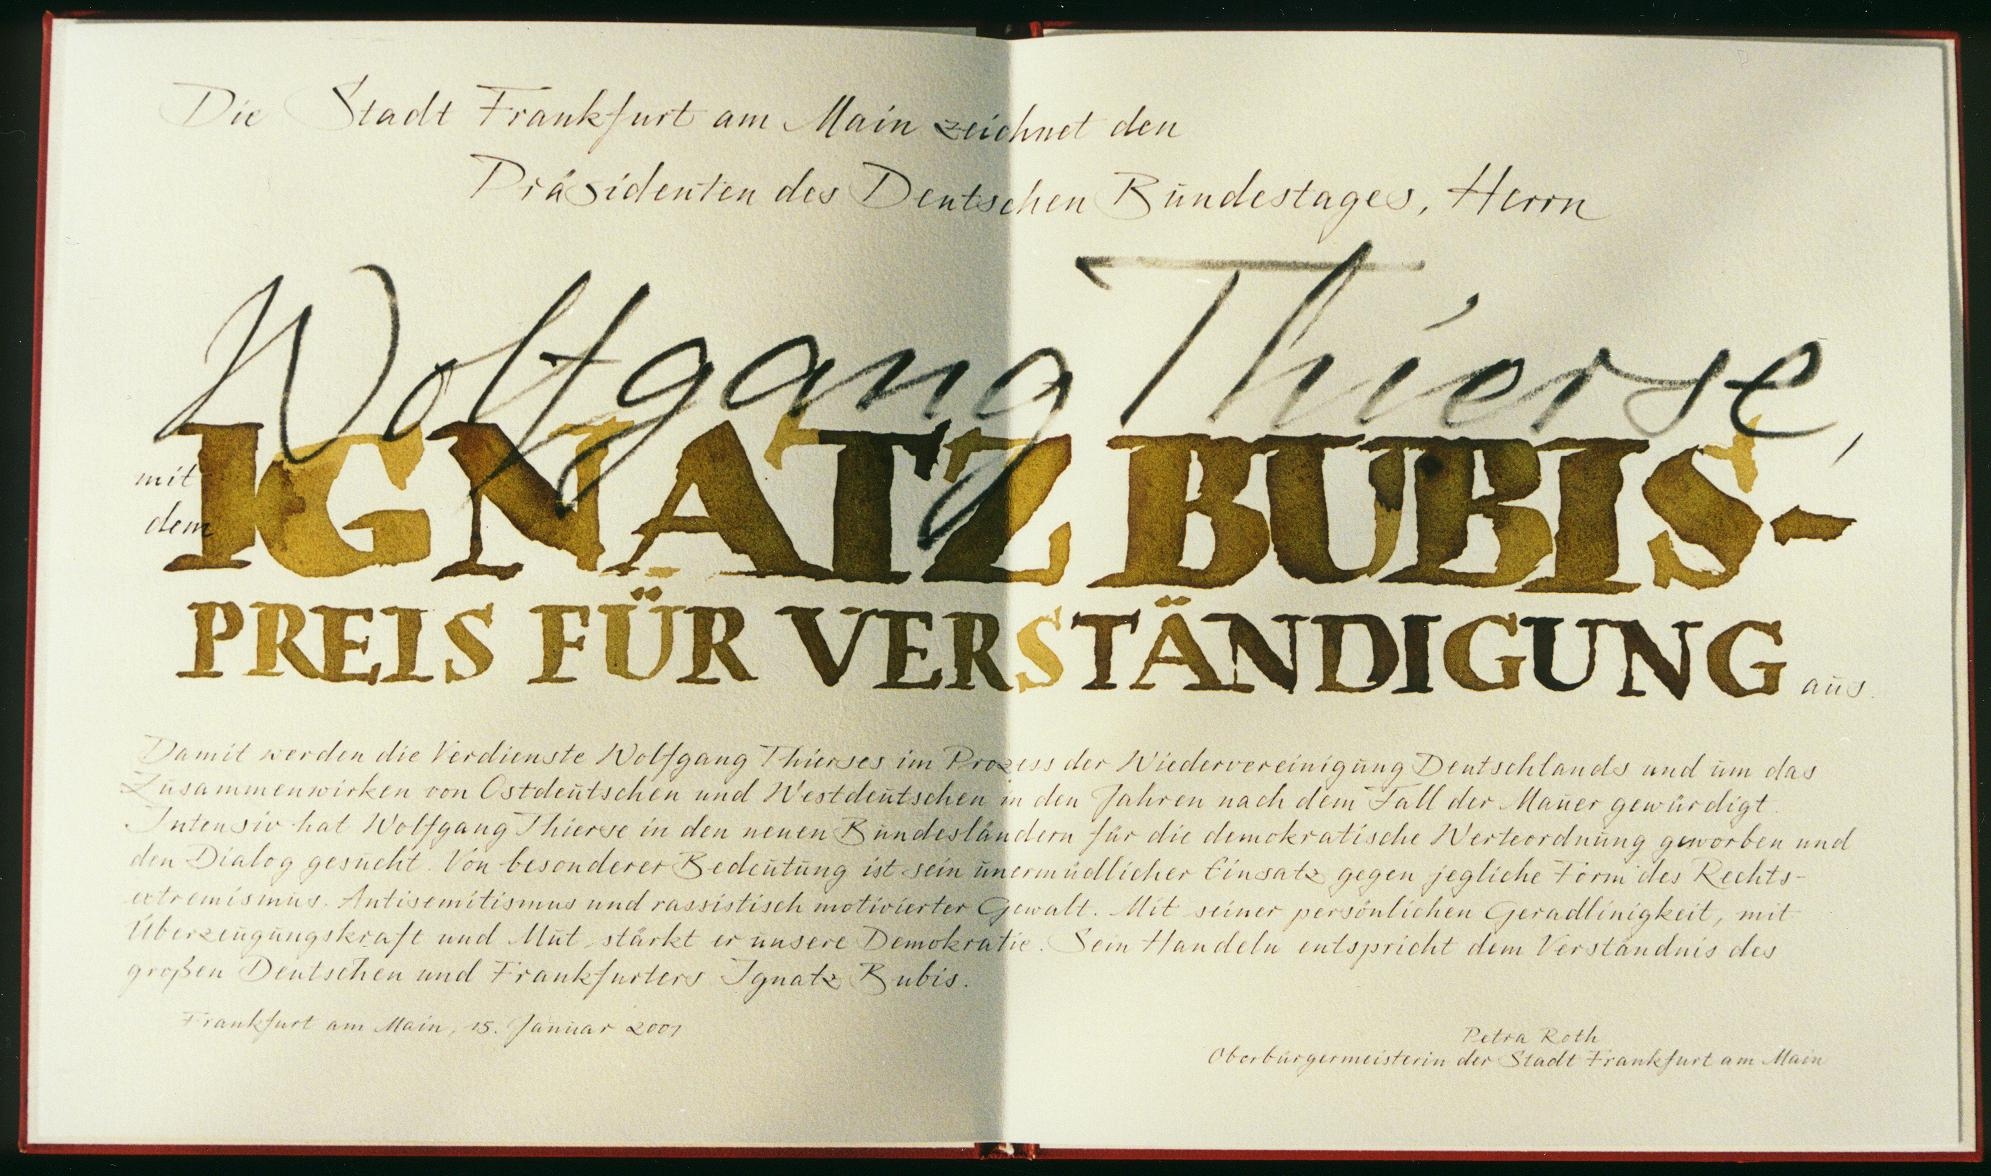 Die Stadt Frankfurt am Main zeichnet den
Präsidenten des Deutschen Bundestages, Herrn
Wolfgang Thierse,
mit
dem
IGNATZ BUBIS-
PREIS FÜR VERSTÄNDIGUNG aus.
Damit werden die Verdienste Wolfgang Thierses im Prozess der Wiedervereinigung Deutschlands und um das
Zusammenwirken von Ostdeutschen und Westdeutschen in den Jahren nach dem Fall der Mauer gewürdigt.
Intensiv hat Wolfgang Thierse in den neuen Bundesländern für die demokratische Werteordnung geworben und
den Dialog gesucht. Von besonderer Bedeutung ist sein unermüdlicher Einsatz gegen jegliche Form des Rechts-
extremismus, Antisemitismus und rassistisch motivierter Gewalt. Mit seiner persönlichen Geradlinigkeit, mit
Überzeugungskraft und Mut stärkt er unsere Demokratie. Sein Handeln entspricht dem Verständnis des
großen Deutschen und Frankfurters Ignatz Bubis.
Frankfurt am Main, 15. Januar 2001
Petra Roth
Oberbürgermeisterin der Stadt Frankfurt am Main